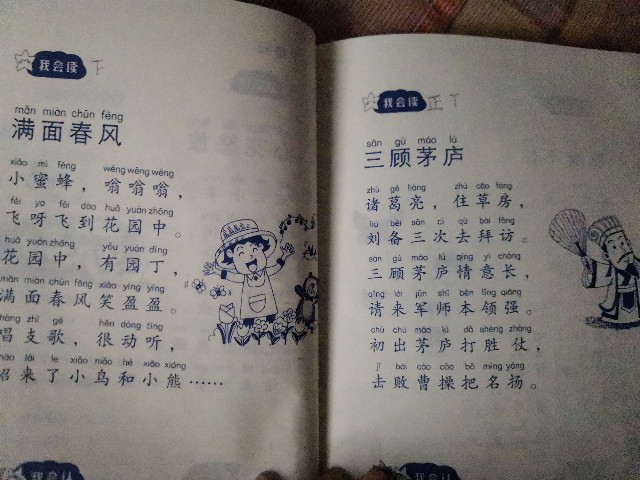 我会读 下
mǎn miàn chūn fēng
满面春风
xiǎo mì fēng wēng wēng wēng
小蜜蜂，嗡嗡嗡，
fēi ya fēi dào huā yuán zhōng
飞呀飞到花园中。
huā yuán zhōng yǒu yuán dīng
花园中，有园丁，
mǎn miàn chūn fēng xiào yíng yíng
满面春风笑盈盈。
chàng zhī gē hěn dòng tīng
唱支歌，很动听，
zhāo lái le xiǎo niǎo hé xiǎo xióng
招来了小鸟和小熊……
我会认
我会读 正丅
sān gù máo lú
三顾茅庐
zhū gě liàng zhù cǎo fáng
诸葛亮，住草房，
liú bèi sān cì qù bài fǎng
刘备三次去拜访。
sān gù máo lú qíng yì cháng
三顾茅庐情意长，
qǐng lái jūn shī běn lǐng qiáng
请来军师本领强。
chū chū máo lú dǎ shèng zhàng
初出茅庐打胜仗，
jī bài cáo cāo bǎ míng yáng
击败曹操把名扬。
我会认